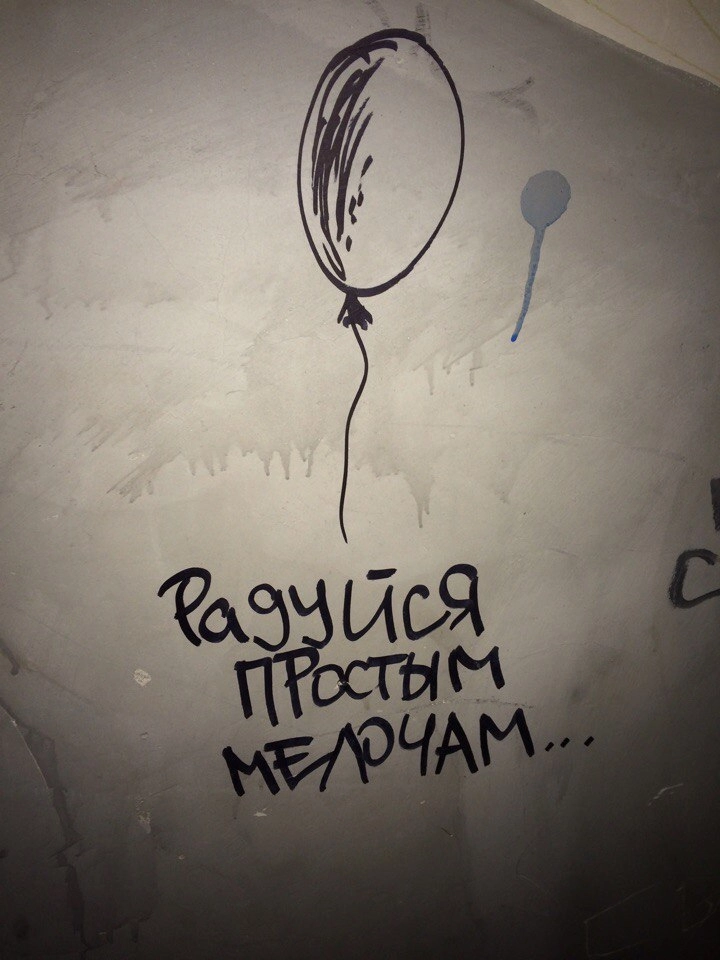 Радуйся
простым
мелочАм...